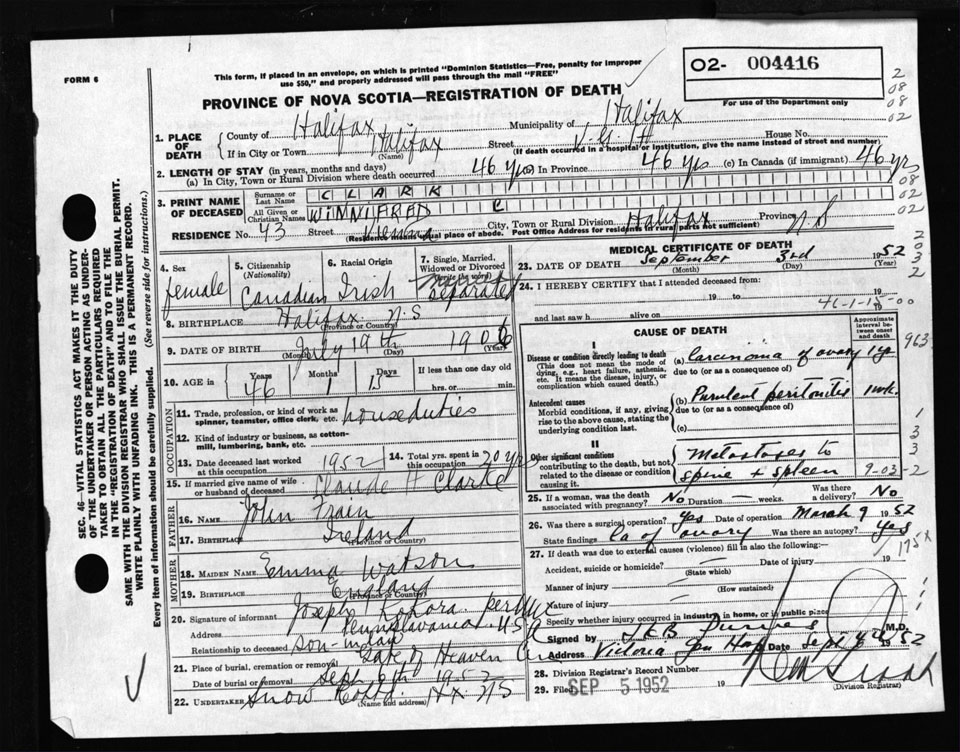 FORM 6
This form, if placed in an envelope, on which is printed "Dominion Statistics—Free, penalty for improper
use $50," and properly addressed will pass through the mail "FREE"
PROVINCE OF NOVA SCOTIA—REGISTRATION OF DEATH
O2- 004416
For use of the Department only
2
08
08
02
1. PLACE OF DEATH
County of Halifax Municipality of Halifax
If in City or Town Halifax (Name) Street V.G.H. House No.
(If death occurred in a hospital or institution, give the name instead of street and number)
2. LENGTH OF STAY (in years, months and days)
(a) In City, Town or Rural Division where death occurred 46 yrs (b) In Province 46 yrs (c) In Canada (if immigrant) 46 yrs
3. PRINT NAME OF DECEASED
Surname or Last Name CLARK
All Given or Christian Names WINNIFRED C
08
08
02
RESIDENCE No. 43 Street City, Town or Rural Division Halifax Province N S
(Residence means usual place of abode. Post Office Address for residents in rural parts not sufficient)
4. Sex female
5. Citizenship (Nationality) Canadian
6. Racial Origin Irish
7. Single, Married, Widowed or Divorced (Write the word) separated
8. BIRTHPLACE Halifax N.S
(Province or Country)
9. DATE OF BIRTH July 19th 1906
(Month) (Day) (Year)
10. AGE in Years 46 Months 1 Days If less than one day
hrs. or min.
OCCUPATION
11. Trade, profession, or kind of work as spinner, teamster, office clerk, etc. houseduties
12. Kind of industry or business, as cotton-mill, lumbering, bank, etc.
13. Date deceased last worked at this occupation 1952
14. Total yrs. spent in this occupation 20 yrs
15. If married give name of wife or husband of deceased Claude H Clarke
FATHER
16. NAME John Frain
17. BIRTHPLACE Ireland
(Province or Country)
MOTHER
18. MAIDEN NAME Emma Watson
19. BIRTHPLACE England
(Province or Country)
20. Signature of informant Joseph Kokora per
Address Pennslavania USA
Relationship to deceased son-inlaw
21. Place of burial, cremation or removal Gate of Heaven Cem
Date of burial or removal Sept 6th 1952
22. UNDERTAKER Snow Co Ltd. Hx NS
(Name and address)
MEDICAL CERTIFICATE OF DEATH
23. DATE OF DEATH September 3rd 1952
(Month) (Day) (Year)
24. I HEREBY CERTIFY that I attended deceased from:
19 to 19
and last saw h alive on 19
46-1-15-00
CAUSE OF DEATH
Approximate interval between onset and death
I
Disease or condition directly leading to death
(This does not mean the mode of dying, e.g., heart failure, asthenia, etc. It means the disease, injury, or complication which caused death.)
(a) Carcinoma of ovary 1 yr
due to (or as a consequence of)
Antecedent causes
Morbid conditions, if any, giving rise to the above cause, stating the underlying condition last.
(b) Purulent peritonitis 1 wk.
due to (or as a consequence of)
(c)
II
Other significant conditions
contributing to the death, but not related to the disease or condition causing it.
Metastases to
spine + spleen
9-03-2
25. If a woman, was the death associated with pregnancy? No Duration — weeks. Was there a delivery? No
26. Was there a surgical operation? Yes Date of operation March 9 1952
State findings Ca of ovary Was there an autopsy? Yes
27. If death was due to external causes (violence) fill in also the following:—
Accident, suicide or homicide? Date of injury 19
(State which)
Manner of injury
(How sustained)
Nature of injury
Specify whether injury occurred in industry, in home, or in public place
Signed by M.D.
Address Victoria Gen Hosp Date Sept 4 1952
28. Division Registrar's Record Number
29. Filed SEP 5 1952 19
(Division Registrar)
963
175x
SEC. 46—VITAL STATISTICS ACT MAKES IT THE DUTY
OF THE UNDERTAKER OR PERSON ACTING AS UNDERTAKER
TO OBTAIN ALL THE PARTICULARS REQUIRED
IN THE "REGISTRATION OF DEATH" AND TO FILE THE
SAME WITH THE DIVISION REGISTRAR WHO SHALL ISSUE THE BURIAL PERMIT.
WRITE PLAINLY WITH UNFADING INK. THIS IS A PERMANENT RECORD.
Every item of information should be carefully supplied. (See reverse side for instructions.)